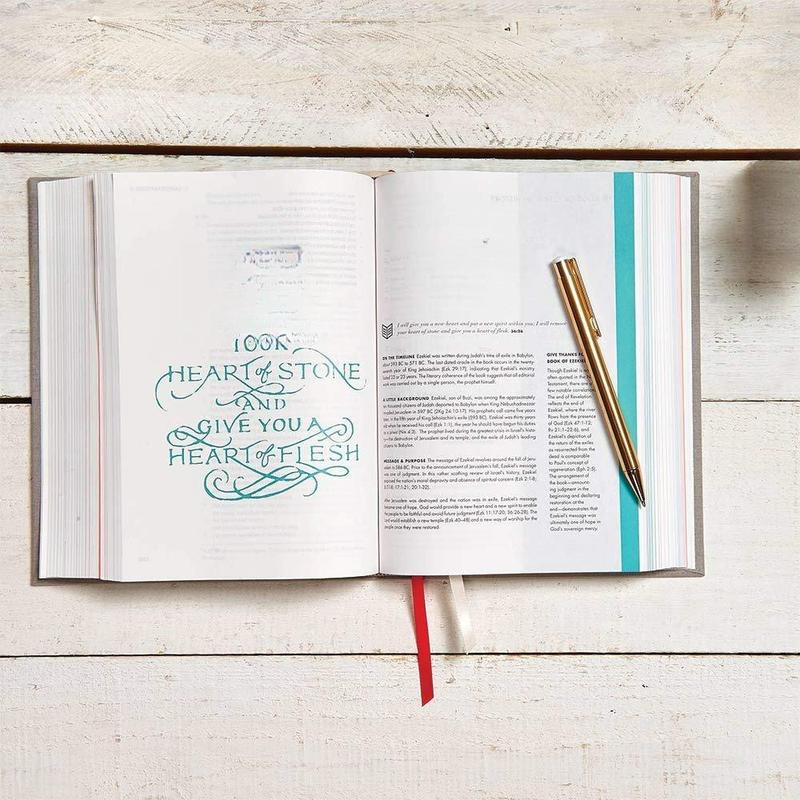 100K
HEART of STONE
AND
GIVE YOU A
HEART of FLESH
I will give you a new heart and put a new spirit within you; I will remove
your heart of stone and give you a heart of flesh. 36:26
ON THE TIMELINE Ezekiel was written during Judah's time of exile in Babylon,
593 BC to 571 BC. The last dated oracle in the book occurs in the twenty-
year of King Jehoiachin's exile (Ezk 29:17), indicating that Ezekiel's ministry
22 or 23 years. The literary coherence of the book suggests that all editorial
work was carried out by a single person, the prophet himself.
A LITTLE BACKGROUND Ezekiel, son of Buzi, was among the approximately
thousand citizens of Judah deported to Babylon when King Nebuchadnezzar
Jerusalem in 597 BC (2Kg 24:10-17). His prophetic call came five years
in the fifth year of King Jehoiachin's exile (593 BC). Ezekiel was thirty years
when he received his call (Ezk 1:1), the year he should have begun his duties
a priest (Nm 4:3). The prophet lived during the greatest crisis in Israel's histo-
the destruction of Jerusalem and its temple, and the exile of Judah's leading
citizens to Babylon.
MESSAGE & PURPOSE The message of Ezekiel revolves around the fall of Jeru-
in 586 BC. Prior to the announcement of Jerusalem's fall, Ezekiel's message
was one of judgment. In this rather scathing review of Israel's history, Ezekiel
the nation's moral depravity and absence of spiritual concern (Ezk 2:1-8;
17:1-21; 20:1-32).
Jerusalem was destroyed and the nation was in exile, Ezekiel's message
one of hope. God would provide a new heart and a new spirit in which
people to be faithful and avoid future judgment (Ezk 11:17-20; 36:26-28). The
would establish a new temple (Ezk 40-48) and a new way of worship for the
people once they were restored.
GIVE THANKS FOR
BOOK OF EZEKIEL
Though Ezekiel is
often quoted in the
Testament, there are
few notable correlations.
The end of Revelation
reflects the end of
Ezekiel, where the river
flows from the presence
of God (Ezk 47:1-12;
Rv 21:1-22:6), and
Ezekiel's depiction of
the return of the exiles
as resurrected from the
dead is comparable
to Paul's concept of
regeneration (Eph 2:5).
The arrangement of
the book—announc-
ing judgment in the
beginning and declaring
restoration at the
end—demonstrates that
Ezekiel's message was
ultimately one of hope in
God's sovereign mercy.